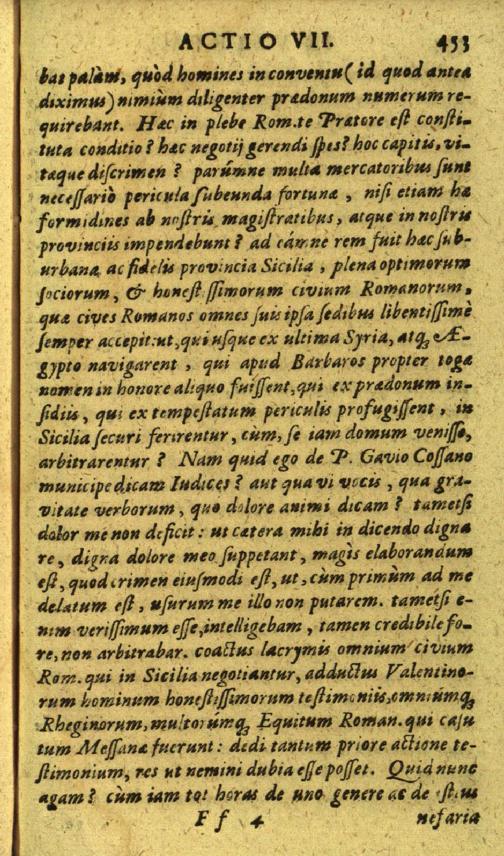 ACTIO VII. 453
bat palàm, quòd homines in conventu ( id quod antea
diximus ) nimiùm diligenter prædonum numerum re-
quirebant. Hæc in plebe Rom. te Prætore est consti-
tuta conditio ? hæc negotij gerendi spes ? hoc capitis, vi-
tæque discrimen ? parúmne multa mercatoribus sunt
necessariò pericula subeunda fortunæ , nisi etiam hæ
formidines ab nostris magistratibus, atque in nostris
provinciis impendebunt ? ad eámne rem fuit hæc sub-
urbana, ac fidelis provincia Sicilia , plena optimorum
sociorum, & honestissimorum civium Romanorum,
quæ cives Romanos omnes suis ipsa sedibus libentissimè
semper accepit: ut, qui usque ex ultima Syria, atq; Æ-
gypto navigarent , qui apud Barbaros propter togæ
nomen in honore aliquo fuissent, qui ex prædonum in-
sidiis , qui ex tempestatum periculis profugissent , in
Sicilia securi ferirentur , cùm, se iam domum venisse,
arbitrarentur ? Nam quid ego de P. Gavio Cossano
municipe dicam Iudices ? aut qua vi vocis , qua gra-
vitate verborum , quo dolore animi dicam ? tametsi
dolor me non deficit : ut cætera mihi in dicendo digna
re , digna dolore meo suppetant , magis elaborandum
est, quod crimen eiusmodi est, ut, cùm primùm ad me
delatum est , usurum me illo non putarem. tametsi e-
nim verissimum esse, intelligebam , tamen credibile fo-
re, non arbitrabar. coactus lacrymis omnium civium
Rom. qui in Sicilia negotiantur, adductus Valentino-
rum hominum honestissimorum testimoniis, omniúmq;
Rheginorum, multorúmq; Equitum Roman. qui casu
tum Messanæ fuerunt : dedi tantum priore actione te-
stimonium, res ut nemini dubia esse posset. Quid nunc
agam ? cùm iam tot horas de uno genere ac de istius
F f 4 nefaria